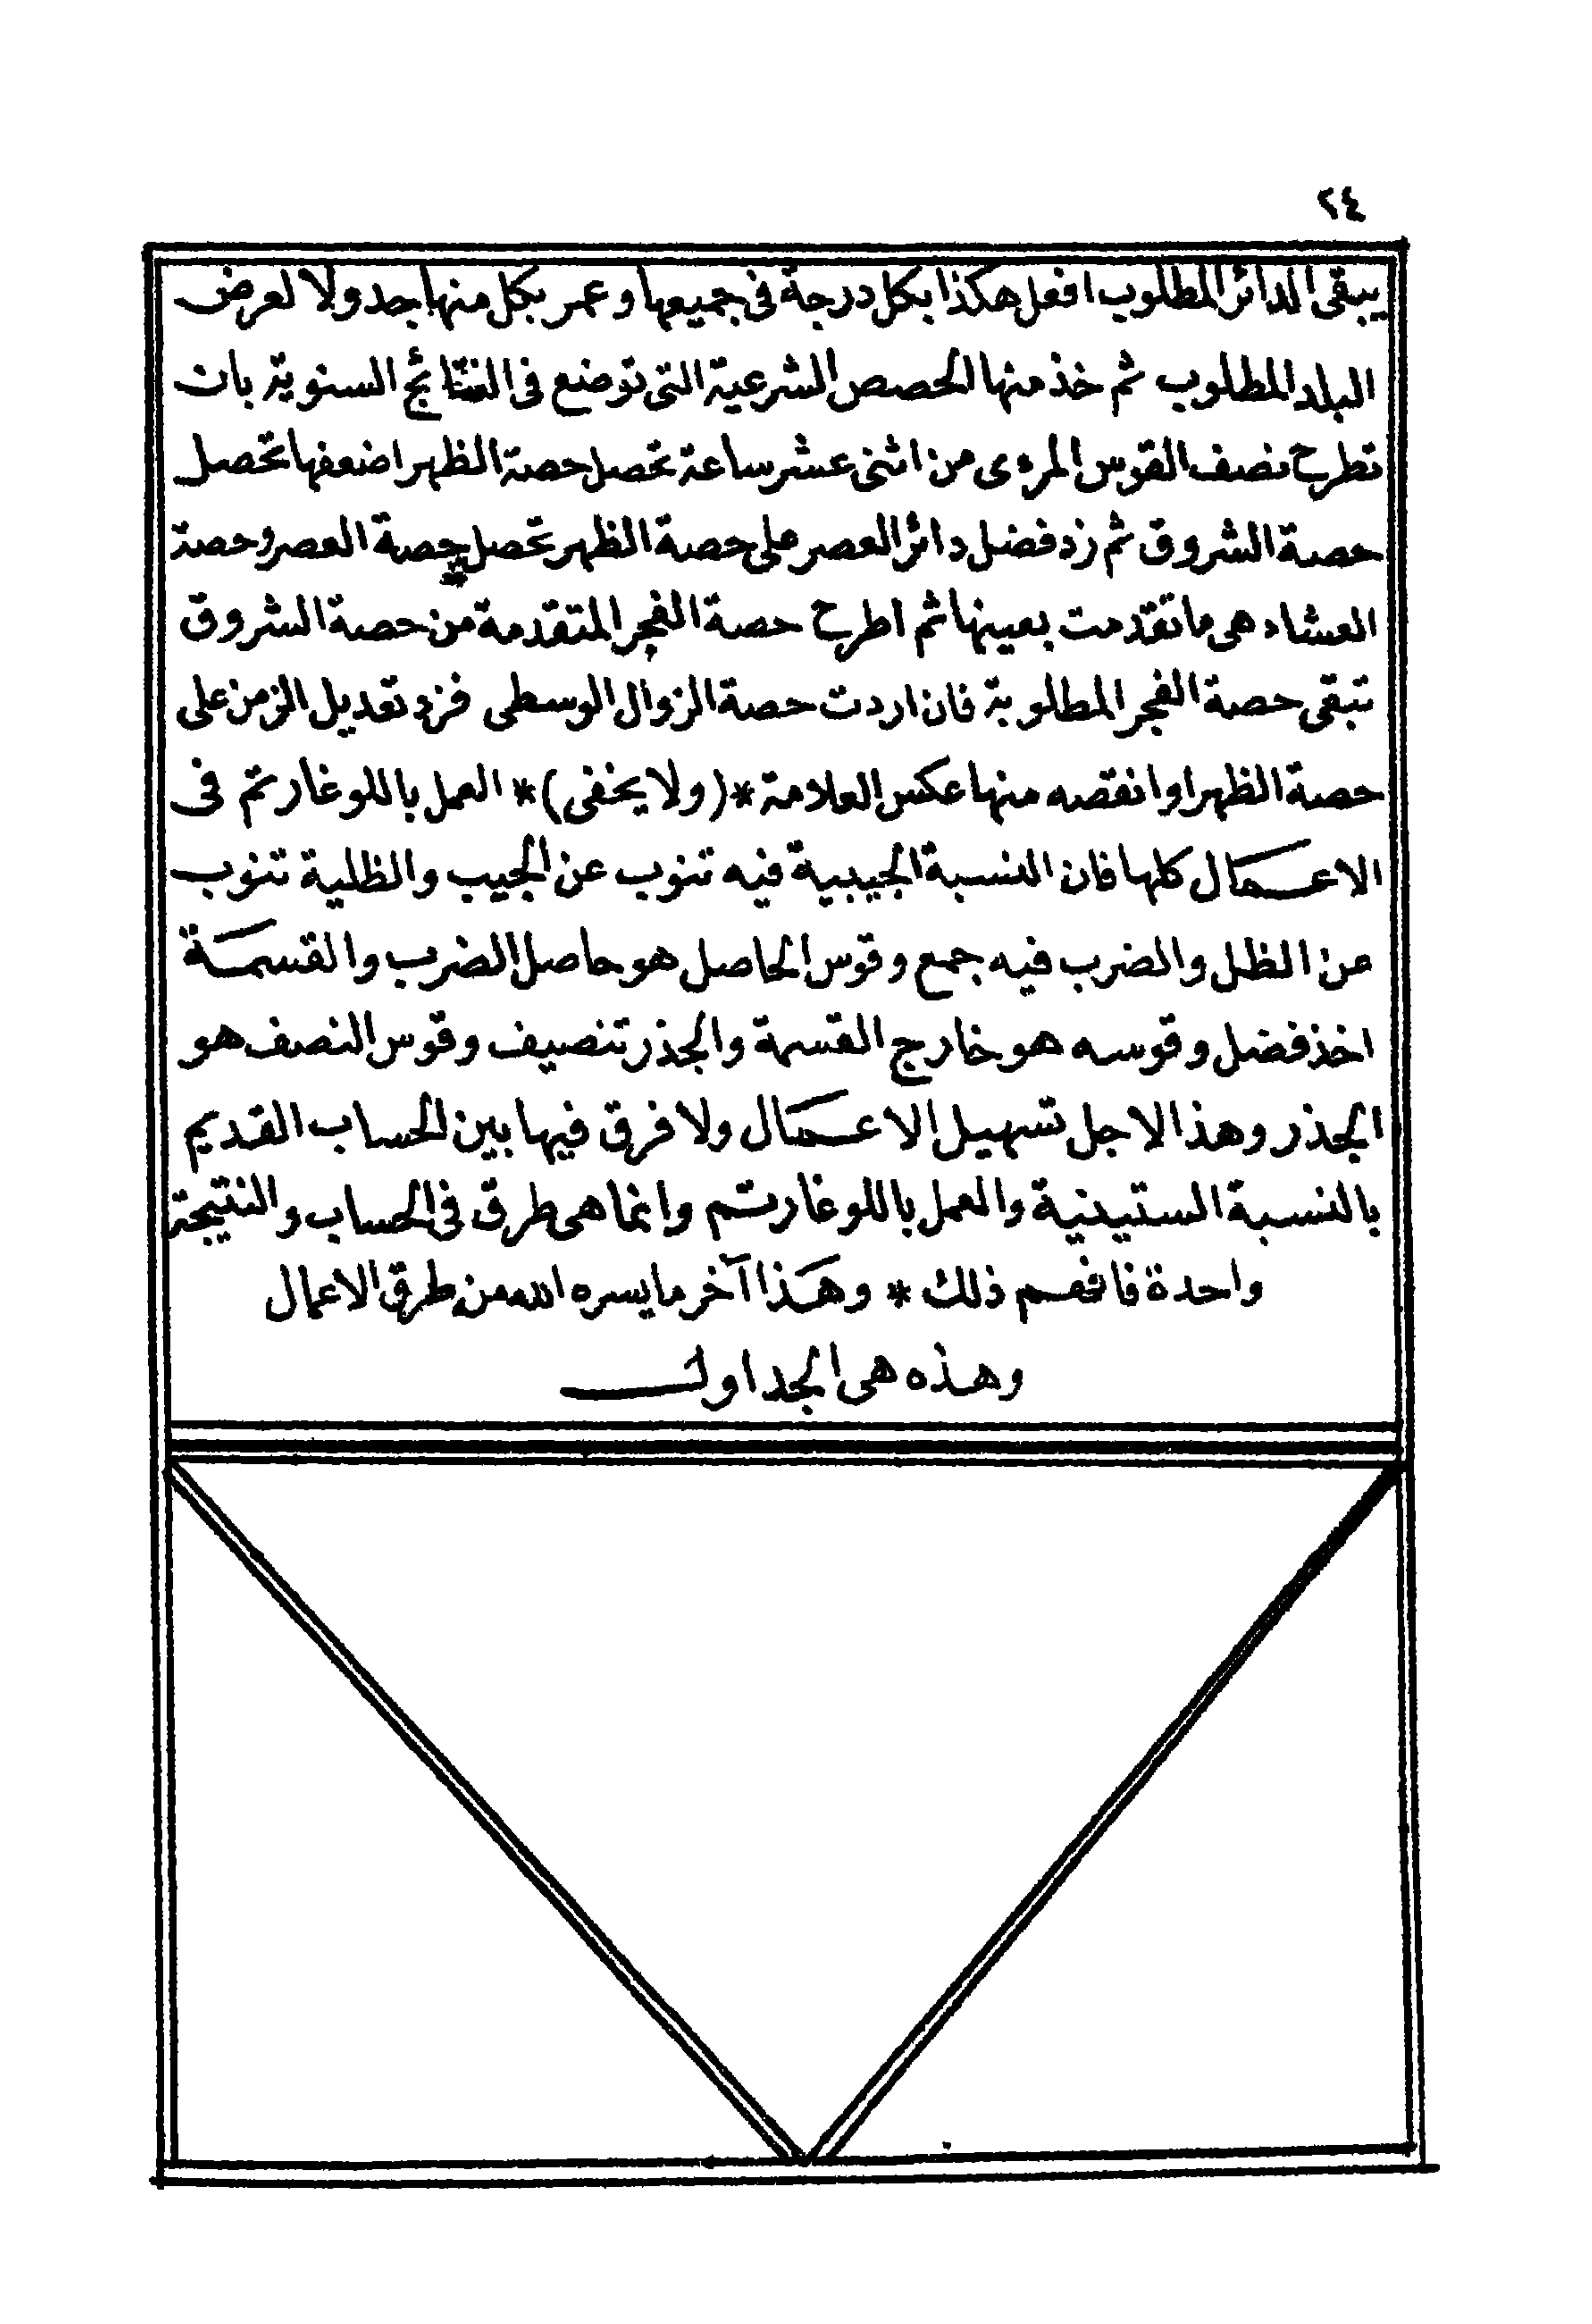 ٢٤
يبقى الدائر المطلوب افعل هكذا بكل درجة فى جميعها وعمر بكل منها جدولا لعرض
البلد المطلوب ثم خذ منها الحصص الشرعية التى توضع فى النتائج السنوية بان
تطرح نصف القوس المرءى من اثنى عشر ساعة تحصل حصة الظهر اضعفها تحصل
حصة الشروق ثم زد فضل دائر العصر على حصة الظهر تحصل حصة العصر وحصة
العشاء هى ما تقدمت بعينها ثم اطرح حصة الفجر المتقدمة من حصة الشروق
تبقى حصة الفجر المطلوبة فان اردت حصة الزوال الوسطى فزد تعديل الزمن على
حصة الظهر او انقصه منها عكس العلامة *(ولا يخفى)* العمل باللوغارتم فى
الاعمال كلها فان النسبة الجيبية فيه تنوب عن الجيب والظلية تنوب
عن الظل والضرب فيه جمع وقوس الحاصل هو حاصل الضرب والقسمة
اخذ فضل وقوسه هو خارج القسمة والجذر تنصيف وقوس النصف هو
الجذر وهذا لاجل تسهيل الاعمال ولا فرق فيها بين الحساب القديم
بالنسبة الستينية والعمل باللوغارتم وانما هى طرق فى الحساب والنتيجة
واحدة فافهم ذلك * وهذا آخر ما يسره الله من طرق الاعمال
وهذه هى الجداول